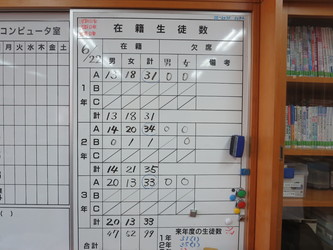 コンピュータ室
在籍生徒数
月 火 水 木 金 土
6/22 在籍 欠席 備考
男 女 計 男 女
1年 A 13 18 31 0 0
B
C
計 13 18 31
2年 A 14 20 34 0 0
B 0 1 1 0
C
計 14 21 35
3年 A 20 13 33 0 0
B
C
計 20 13 33
合計 47 52 99
来年度の生徒数
1年
2年